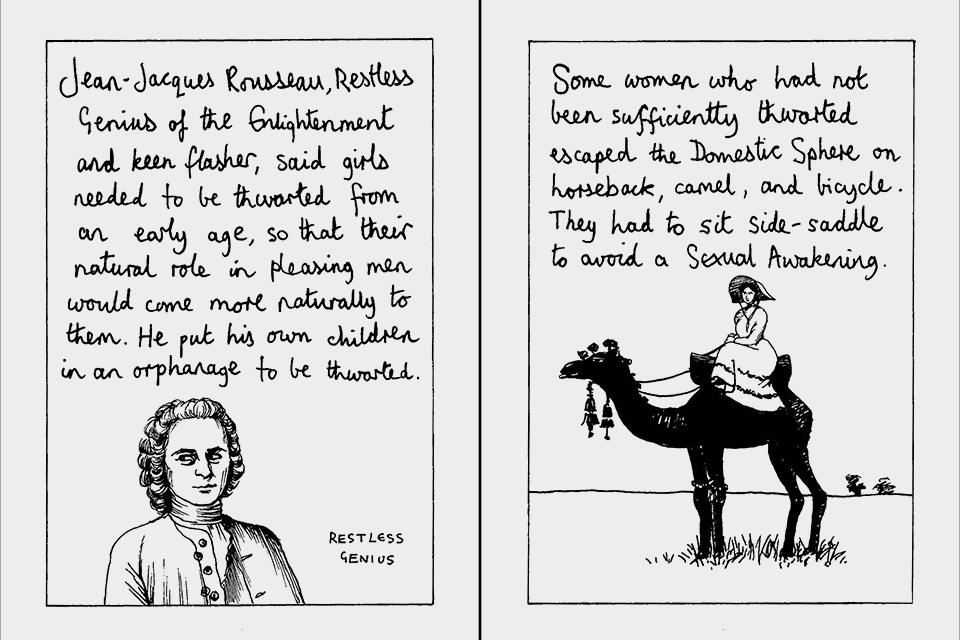 Jean-Jacques Rousseau, Restless
Genius of the Enlightenment
and keen flasher, said girls
needed to be thwarted from
an early age, so that their
natural role in pleasing men
would come more naturally to
them. He put his own children
in an orphanage to be thwarted.
RESTLESS
GENIUS
Some women who had not
been sufficiently thwarted
escaped the Domestic Sphere on
horseback, camel, and bicycle.
They had to sit side-saddle
to avoid a Sexual Awakening.